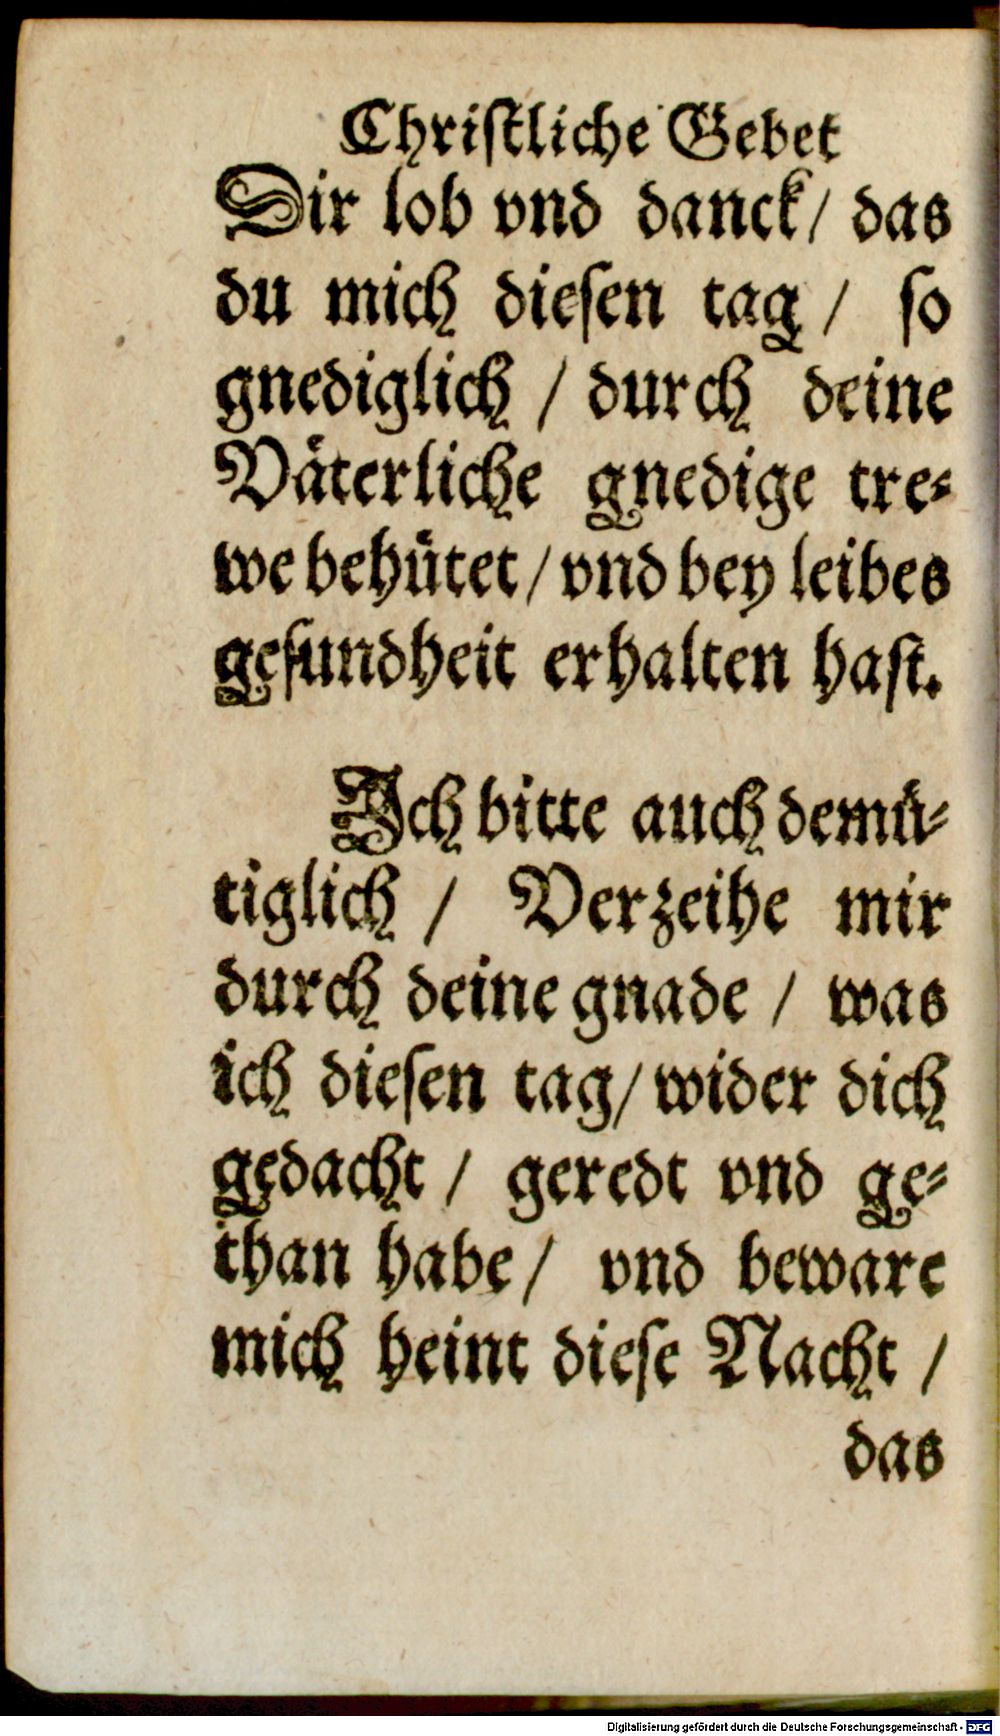 Christliche Gebet
Dir lob vnd danck/ das
du mich diesen tag / so
gnediglich / durch deine
Väterliche gnedige tre-
we behütet / vnd bey leibes
gesundheit erhalten hast.
Ich bitte auch demü-
tiglich / Verzeihe mir
durch deine gnade / was
ich diesen tag/ wider dich
gedacht / geredt vnd ge-
than habe / vnd beware
mich heint diese Nacht /
das
Digitalisierung gefördert durch die Deutsche Forschungsgemeinschaft - DFG